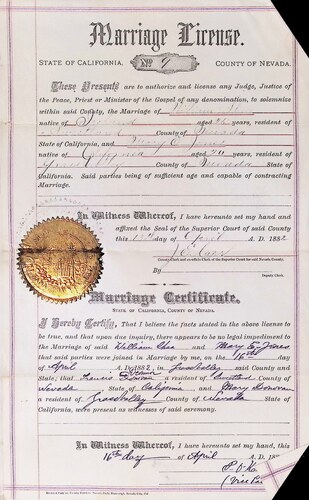 Marriage License.
STATE OF CALIFORNIA. No. 9 COUNTY OF NEVADA.
These Presents are to authorize and license any Judge, Justice of
the Peace, Priest or Minister of the Gospel of any denomination, to solemnize
within said County, the Marriage of William
native of aged years, resident of
County of Nevada
State of California, and Mary E. Jones
native of California aged years, resident of
Grass Valley County of Nevada State of
California. Said parties being of sufficient age and capable of contracting
Marriage.
In Witness Whereof, I have hereunto set my hand and
affixed the Seal of the Superior Court of said County
this day of April A. D. 1882
County Clerk and ex-officio Clerk of the Superior Court for said Nevada County.
By
Deputy.
Marriage Certificate.
STATE OF CALIFORNIA, COUNTY OF NEVADA.
I Hereby Certify, That I believe the facts stated in the above license
to be true, and that upon due inquiry, there appears to be no legal impediment to
the Marriage of said William and Mary E. Jones
that said parties were joined in Marriage by me, on the 16th day
of April A. D. 1882, in Grass Valley said County and
State; that Francis Donovan a resident of County of
Nevada State of California and Mary Donovan
a resident of Grass Valley County of Nevada State of
California were present as witnesses of said ceremony.
In Witness Whereof, I have hereunto set my hand, this
16th day of April A. D. 1882